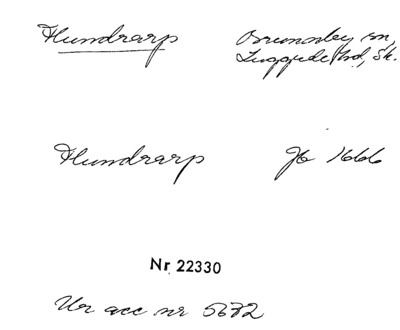 Hundrarp
Brunnby sn,
Luggude hd, Sk.
Hundrarp Jb 1666
Nr 22330
Ur acc nr 5672